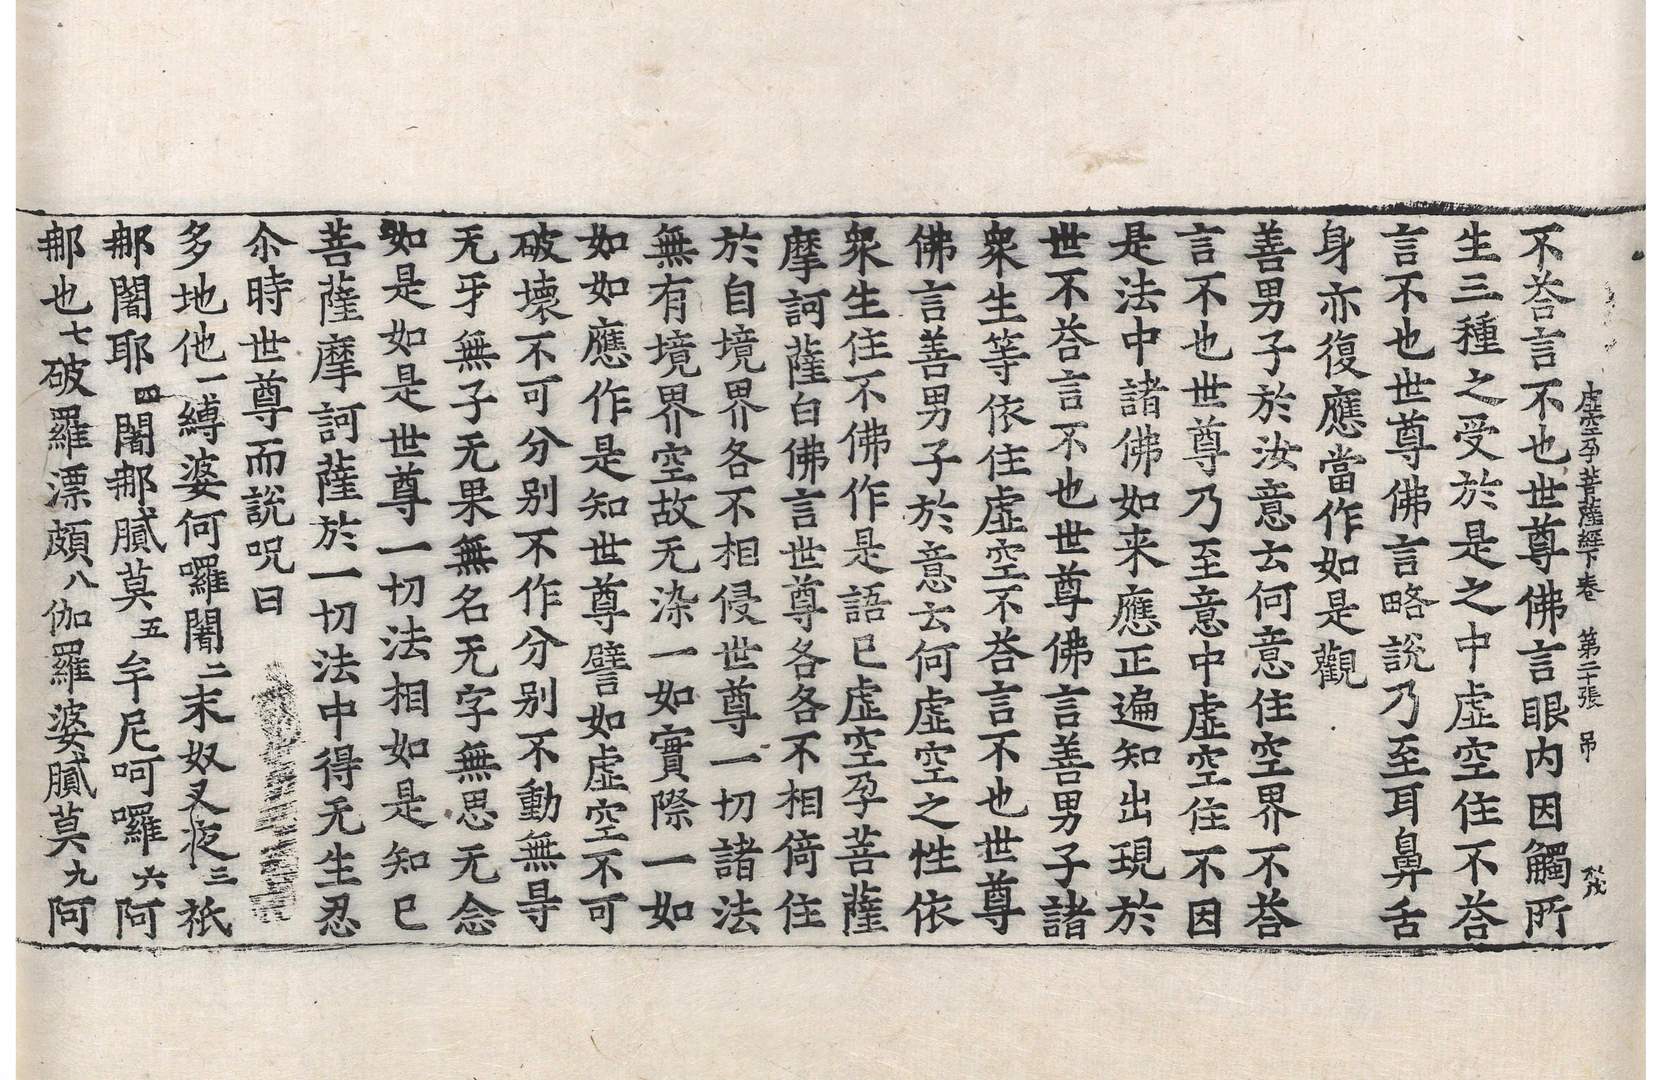 虛空孕菩薩經下卷 第二十張 吊
不荅言不也世尊佛言眼内因觸所
生三種之受於是之中虛空住不荅
言不也世尊佛言略說乃至耳鼻舌
身亦復應當作如是觀
善男子於汝意去何意住空界不荅
言不也世尊乃至意中虛空住不因
是法中諸佛如来應正遍知出現於
世不荅言不也世尊佛言善男子諸
衆生等依住虛空不荅言不也世尊
佛言善男子於意去何虛空之性依
衆生住不佛作是語已虛空孕菩薩
摩訶薩白佛言世尊各各不相倚住
於自境界各不相侵世尊一切諸法
無有境界空故无染一如實際一如
如如應作是知世尊譬如虛空不可
破壞不可分別不作分別不動無㝵
无牙無子无果無名无字無思无念
如是如是世尊一切法相如是知已
菩薩摩訶薩於一切法中得无生忍
尒時世尊而說呪曰
多地他一縛婆何囉闍二末奴叉夜三祇
那闍耶四闍那膩莫五牟尼呵囉六阿
那也七破羅漂頗八伽羅婆膩莫九阿